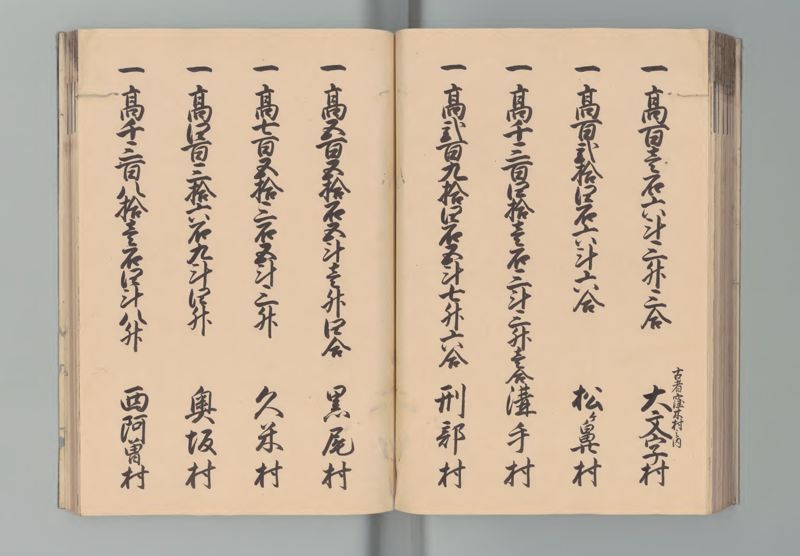 一 高百壱石六斗三升三合 古者窪木村之内 大文字村
一 高百弐拾四石六斗六合 松ヶ鼻村
一 高千三百四拾壱石三斗三升壱合 溝手村
一 高弐百九拾四石五斗七升六合 刑部村
一 高五百五拾石五斗壱升四合 黒尾村
一 高七百五拾三石五斗三升 久米村
一 高四百三拾六石九斗四升 奥坂村
一 高千三百八拾壱石四斗八升 西阿曽村